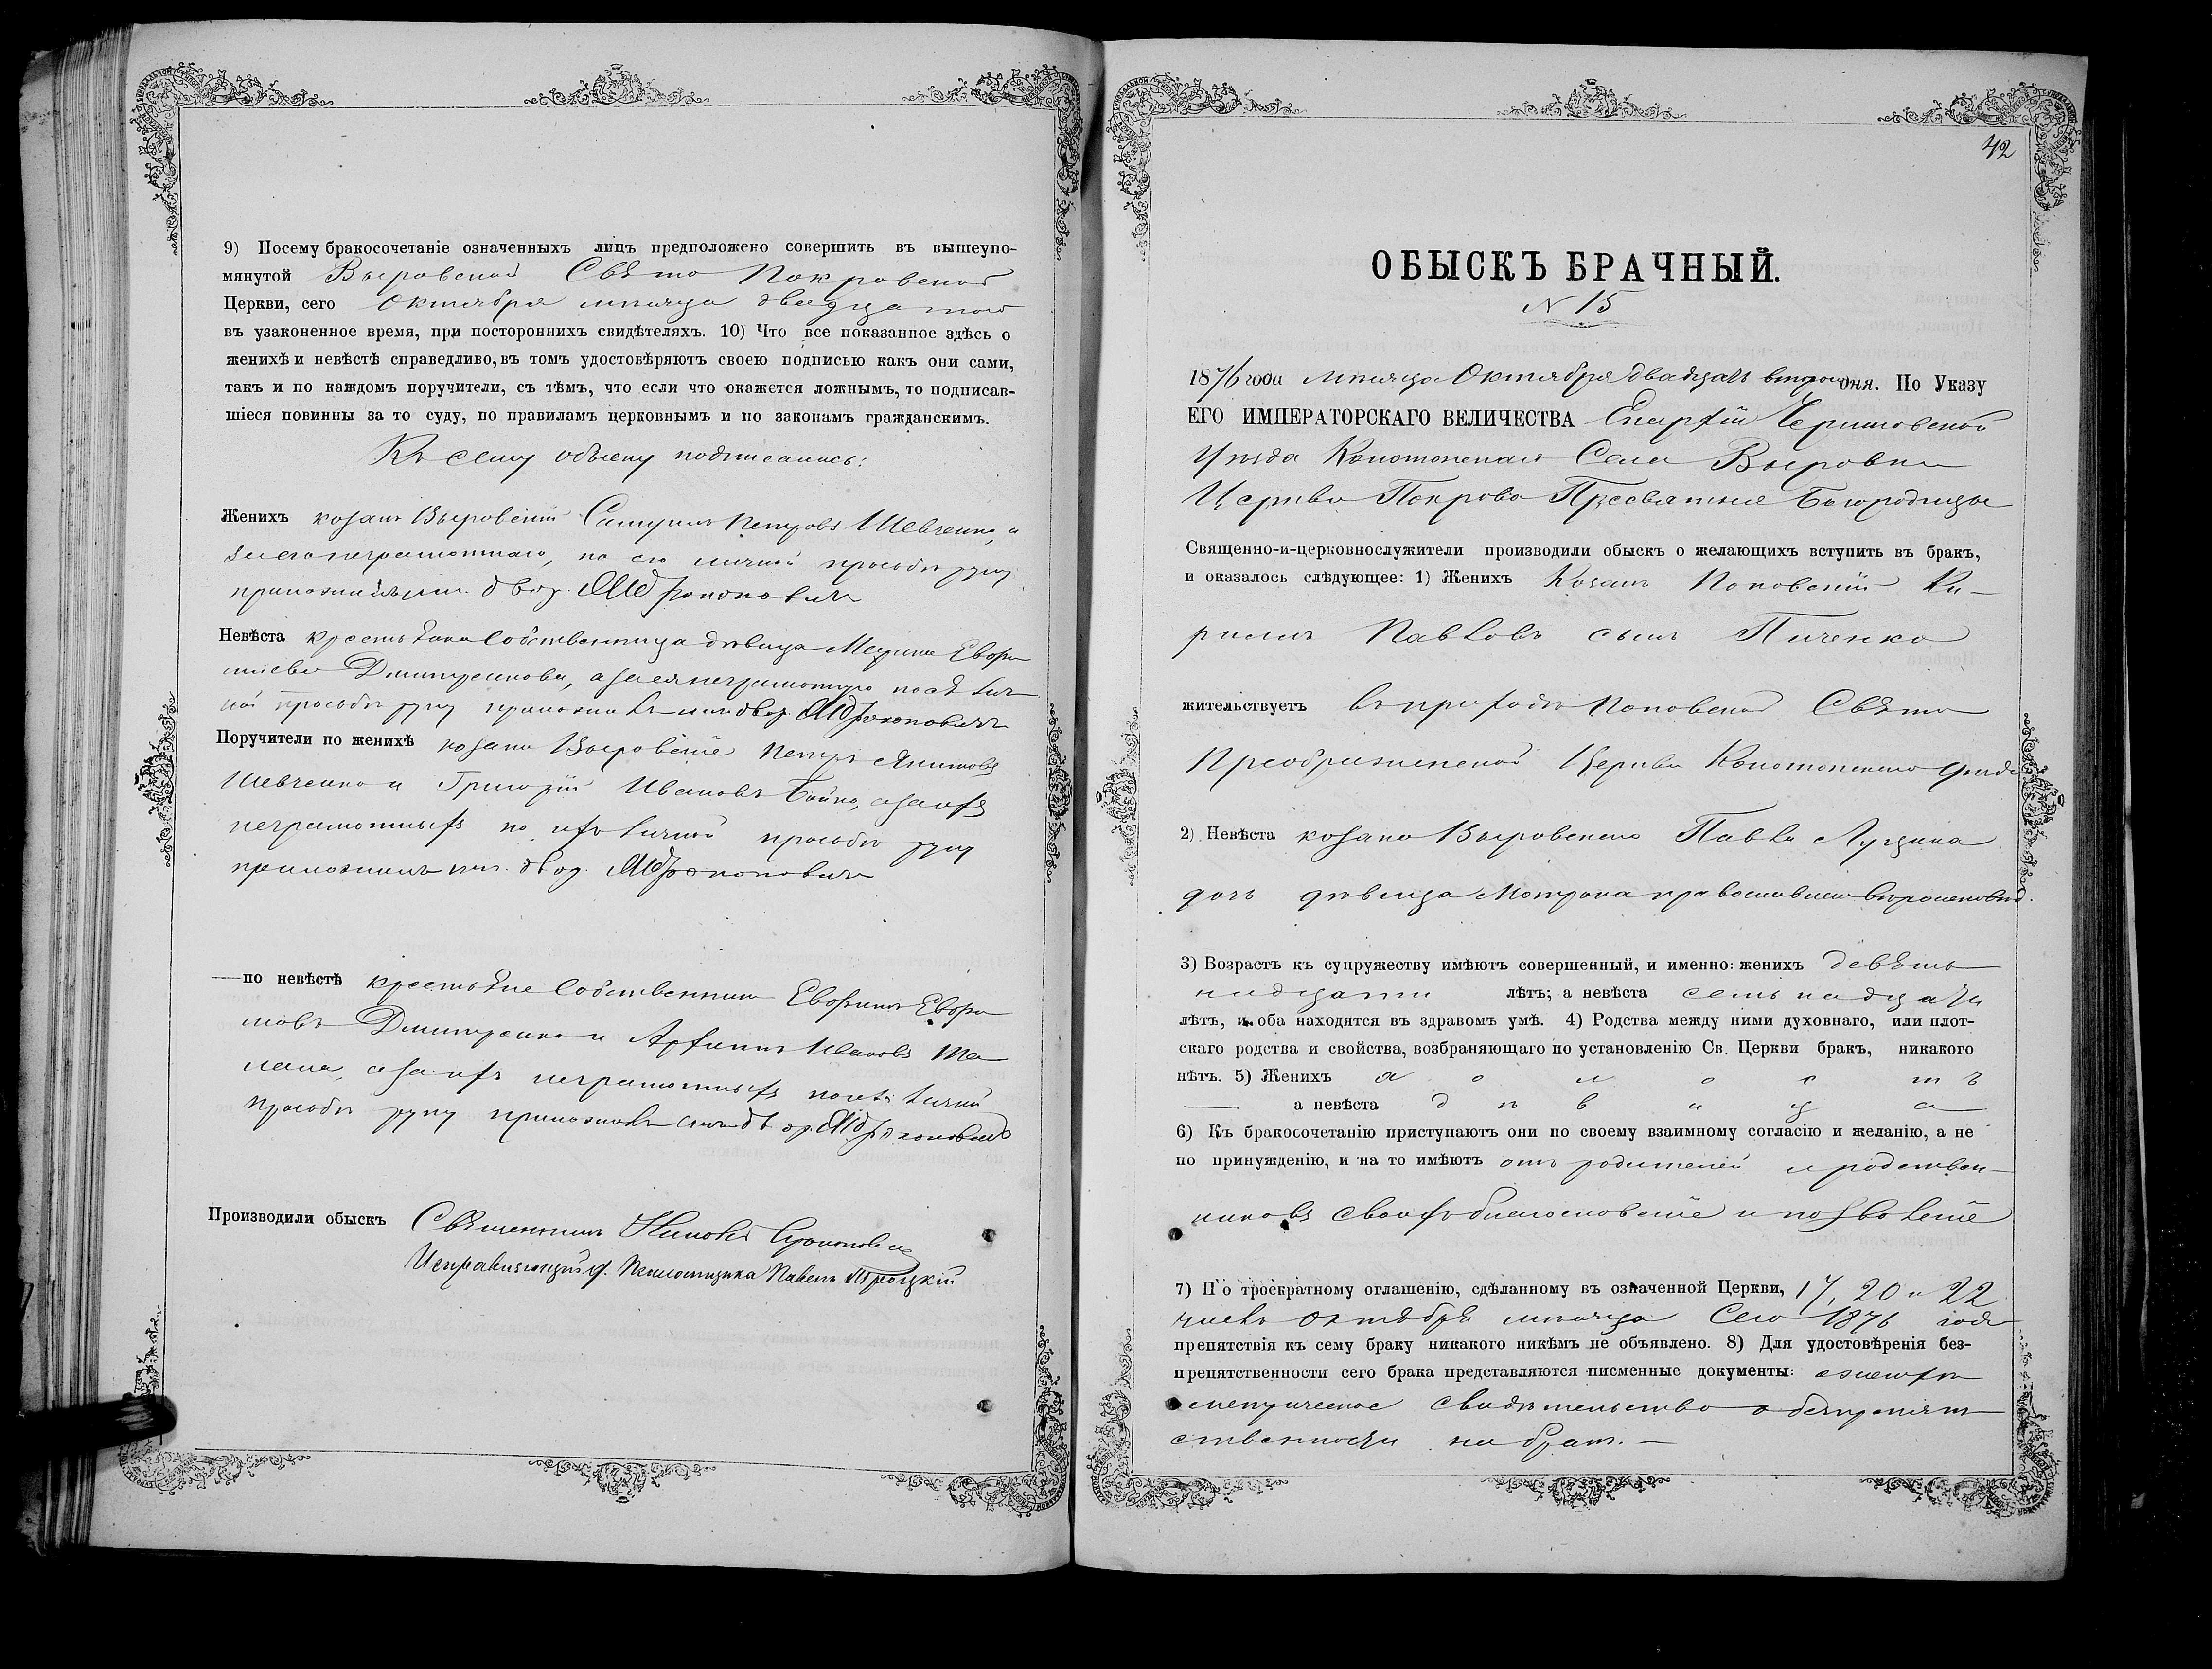 9) Посему бракосочетаніе означенныхъ лицъ предположено совершить въ вышеупо-
мянутой Выровской Свято Покровской
Церкви, сего Октября мѣсяца двадцатого
въ узаконенное время, при постороннихъ свидѣтеляхъ. 10) Что все показанное здѣсь о
женихѣ и невѣстѣ справедливо, въ томъ удостовѣряютъ своею подписью какъ они сами,
такъ и по каждомъ поручители, съ тѣмъ, что если что окажется ложнымъ, то подписав-
шіеся повинны за то суду, по правиламъ церковнымъ и по законамъ гражданскимъ.
Къ сему обыску подписались:
Женихъ козакъ Выровскій Самуилъ Петровъ Шевченко, а
за его неграмотнаго, по его личной просьбѣ руку
приложилъ двор.
Невѣста крестьянка Собственница дѣвица Евфи
міева Дмитренкова, а за ея неграмотную по ея лич
ной просьбѣ руку приложилъ двор.
Поручители по женихѣ козаки Выровскіе Петръ Якимовъ
Шевченко и Григорій Ивановъ Бойко, а за ихъ
неграмотныхъ по ихъ личной просьбѣ руку
приложилъ двор.
—по невѣстѣ крестьяне Собственники Евфимъ Евфи
мовъ Дмитренко и Архипъ Ивановъ
а за ихъ неграмотныхъ личной
просьбѣ руку приложилъ
Производили обыскъ Священникъ
Исправляющій д. Псаломщика Павелъ Троцкій
42
ОБЫСКЪ БРАЧНЫЙ.
N 15
1876 года мѣсяца Октября двадцать второго дня. По Указу
ЕГО ИМПЕРАТОРСКАГО ВЕЛИЧЕСТВА Епархіи Черниговской
Уѣзда Конотопскаго Села Выровки
Церкви Покрова Пресвятыя Богородицы
Священно-и-церковнослужители производили обыскъ о желающихъ вступить въ бракъ,
и оказалось слѣдующее: 1) Женихъ Козакъ Поповскій Ки—
риллъ Павловъ сынъ Пиченко
жительствуетъ въ приходѣ Поповской Свято
Преображенской Церкви Конотопскаго Уѣзда
2) Невѣста козака Выровскаго Павла Луцика
дочь дѣвица Мотрона православнаго вѣроисповѣд.
3) Возрастъ къ супружеству имѣютъ совершенный, и именно: женихъ девять
надцати лѣтъ; а невѣста семьнадцати
лѣтъ, и оба находятся въ здравомъ умѣ. 4) Родства между ними духовнаго, или плот-
скаго родства и свойства, возбраняющаго по установленію Св. Церкви бракъ, никакого
нѣтъ. 5) Женихъ холостъ
— а невѣста дѣвица
6) Къ бракосочетанію приступаютъ они по своему взаимному согласію и желанію, а не
по принужденію, и на то имѣютъ отъ родителей и родствен—
никовъ своихъ благословеніе и позволеніе
7) По троекратному оглашенію, сдѣланному въ означенной Церкви, 17, 20 и 22
числъ октября мѣсяца Сего 1876 года
препятствія къ сему браку никакого никѣмъ не объявлено. 8) Для удостовѣренія без-
препятственности сего брака представляются писменные документы:
свидѣтельство о безпрепят
ственности на бракъ.—